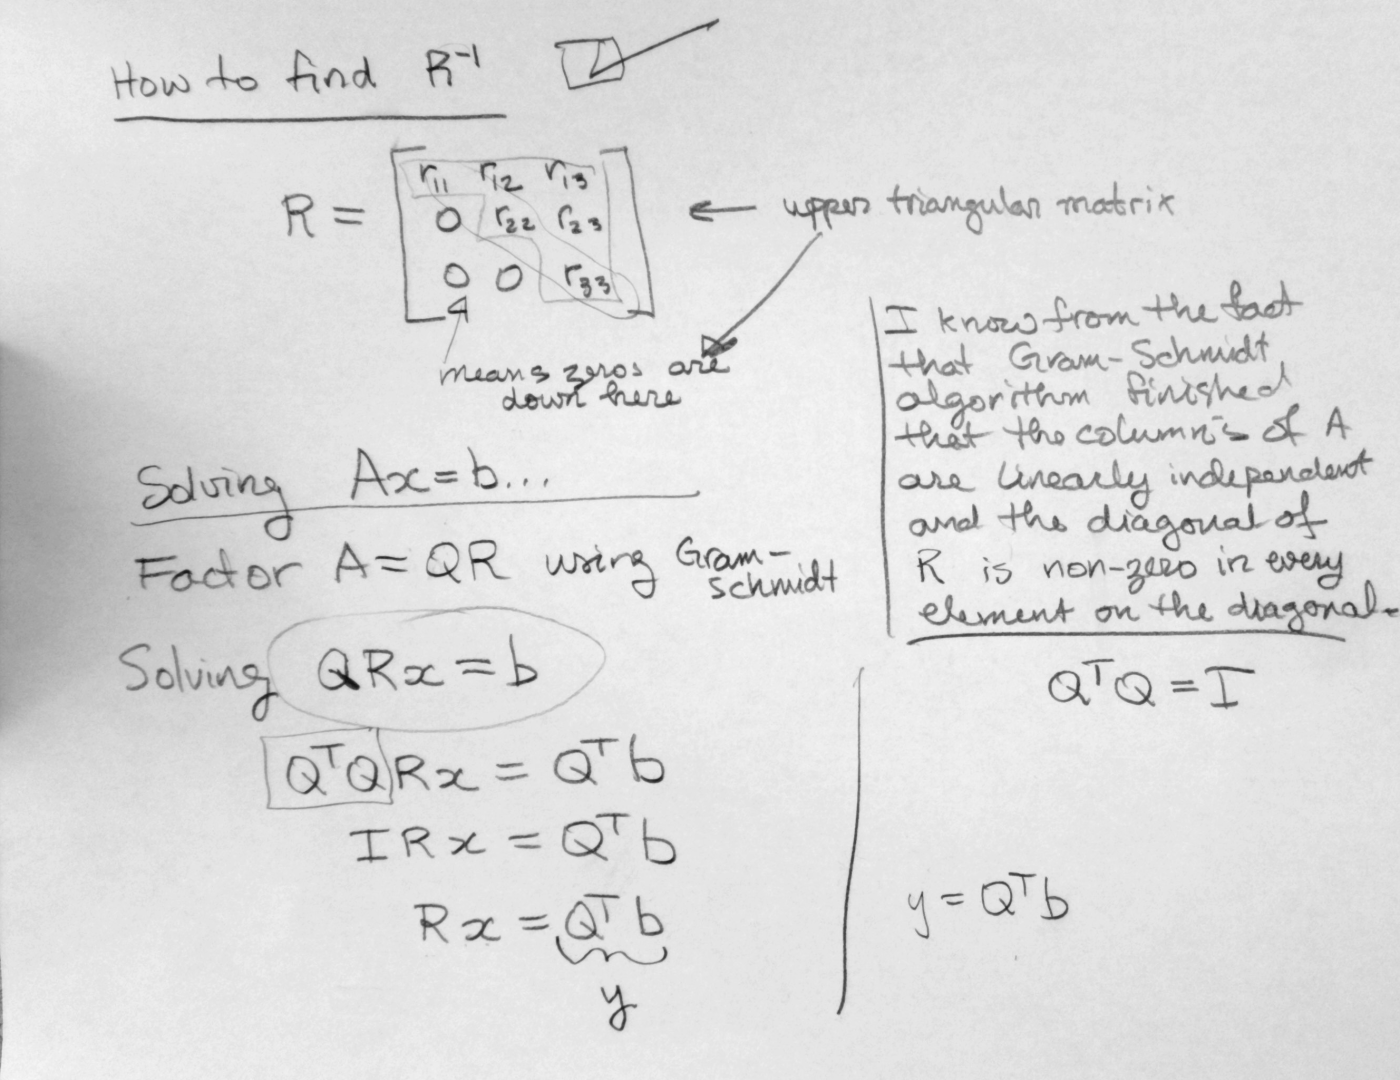 How to find R⁻¹
R = [ r₁₁ r₁₂ r₁₃
0 r₂₂ r₂₃
0 0 r₃₃ ]
← upper triangular matrix
means zeros are
down here
I know from the fact
that Gram-Schmidt
algorithm finished
that the column's of A
are linearly independent
and the diagonal of
R is non-zero in every
element on the diagonal.
Solving Ax = b...
Factor A = QR using Gram-
Schmidt
Solving QRx = b
QᵀQRx = Qᵀb
IRx = Qᵀb
Rx = Qᵀb
y
QᵀQ = I
y = Qᵀb